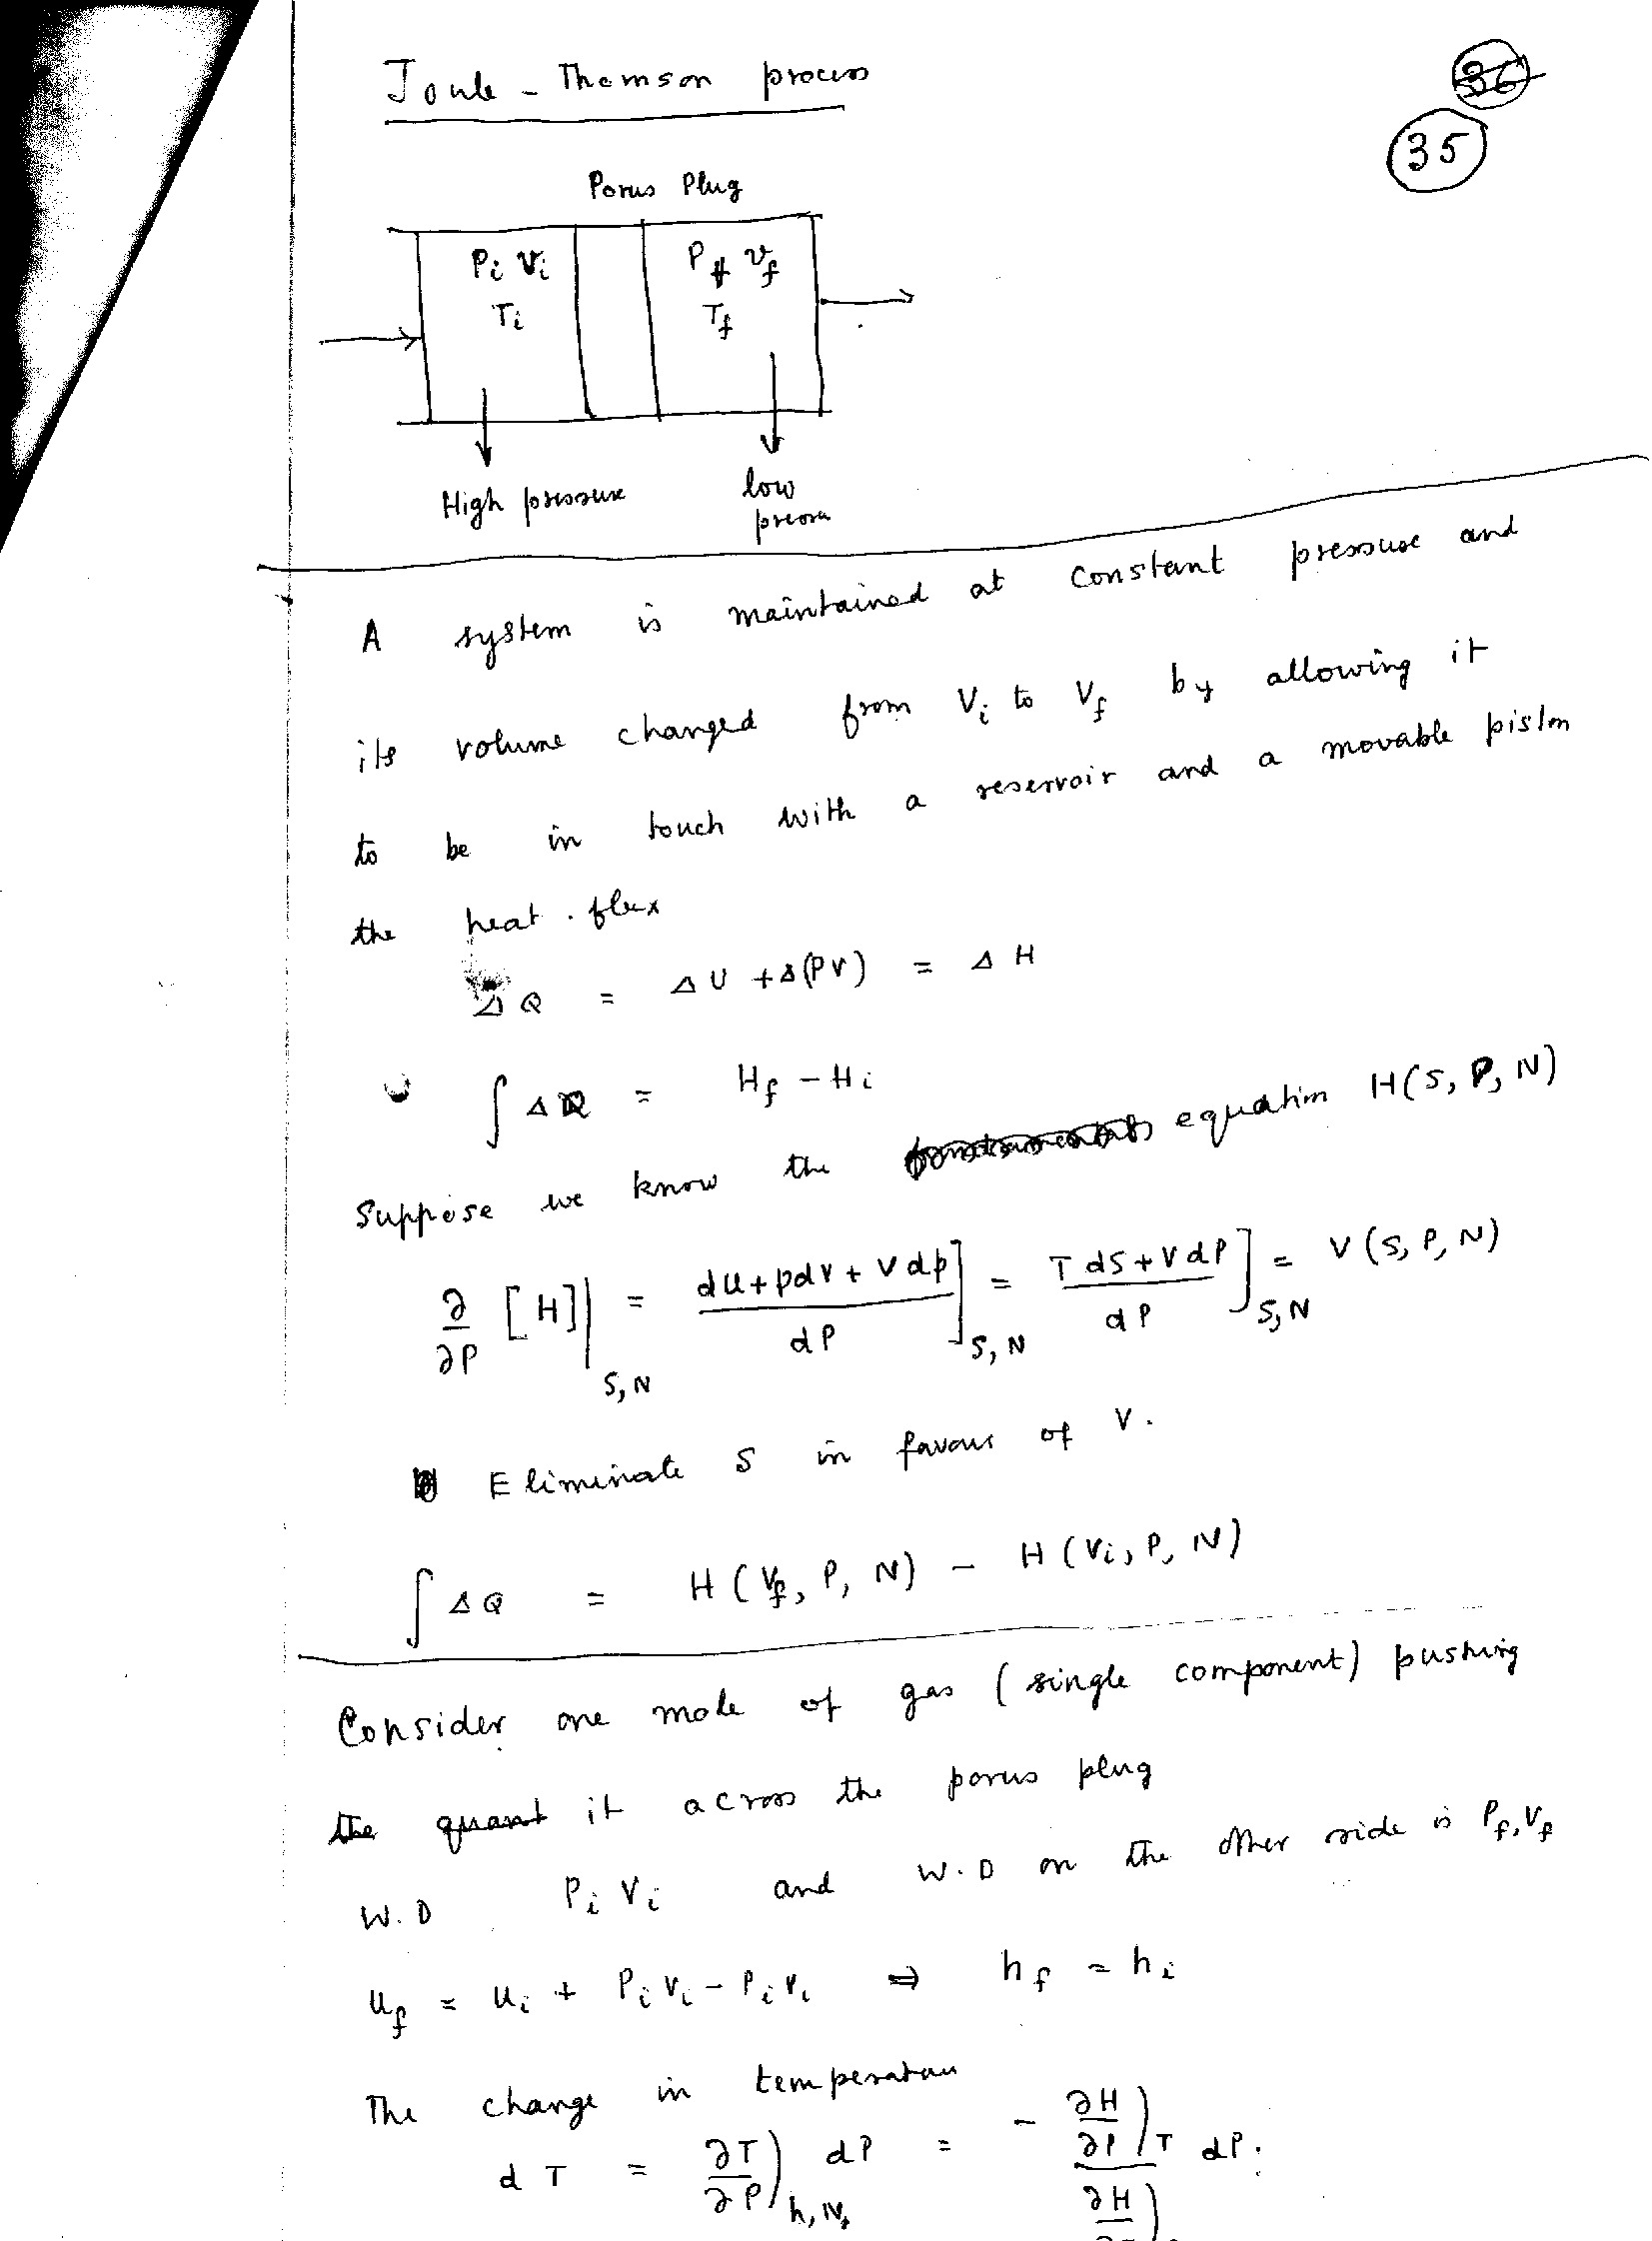 Joule - Thomson process
36
35
Porus Plug
Pi Vi
Ti
Pf vf
Tf
High pressure
low
A system is maintained at constant pressure and
its volume changed from Vi to Vf by allowing it
to be in touch with a reservoir and a movable piston
the heat flux
Δ Q = Δ U + Δ(PV) = Δ H
∫ Δ Q = Hf - Hi
Suppose we know the equation H(S, P, N)
∂/∂P [H]|S,N = (du + pdv + Vdp)/dP]S,N = (T dS + V dP)/dP]S,N = V (S, P, N)
Eliminate S in favour of V.
∫ Δ Q = H (Vf, P, N) - H (Vi, P, N)
Consider one mole of gas (single component) pushing
the quant it across the porus plug
W.D Pi Vi and W.D on the other side is Pf, Vf
uf = ui + Pi Vi - Pi Vi ⇒ hf = hi
The change in
d T = ∂T/∂P)h,N, dP = - ∂H/∂P)T dP.
∂H